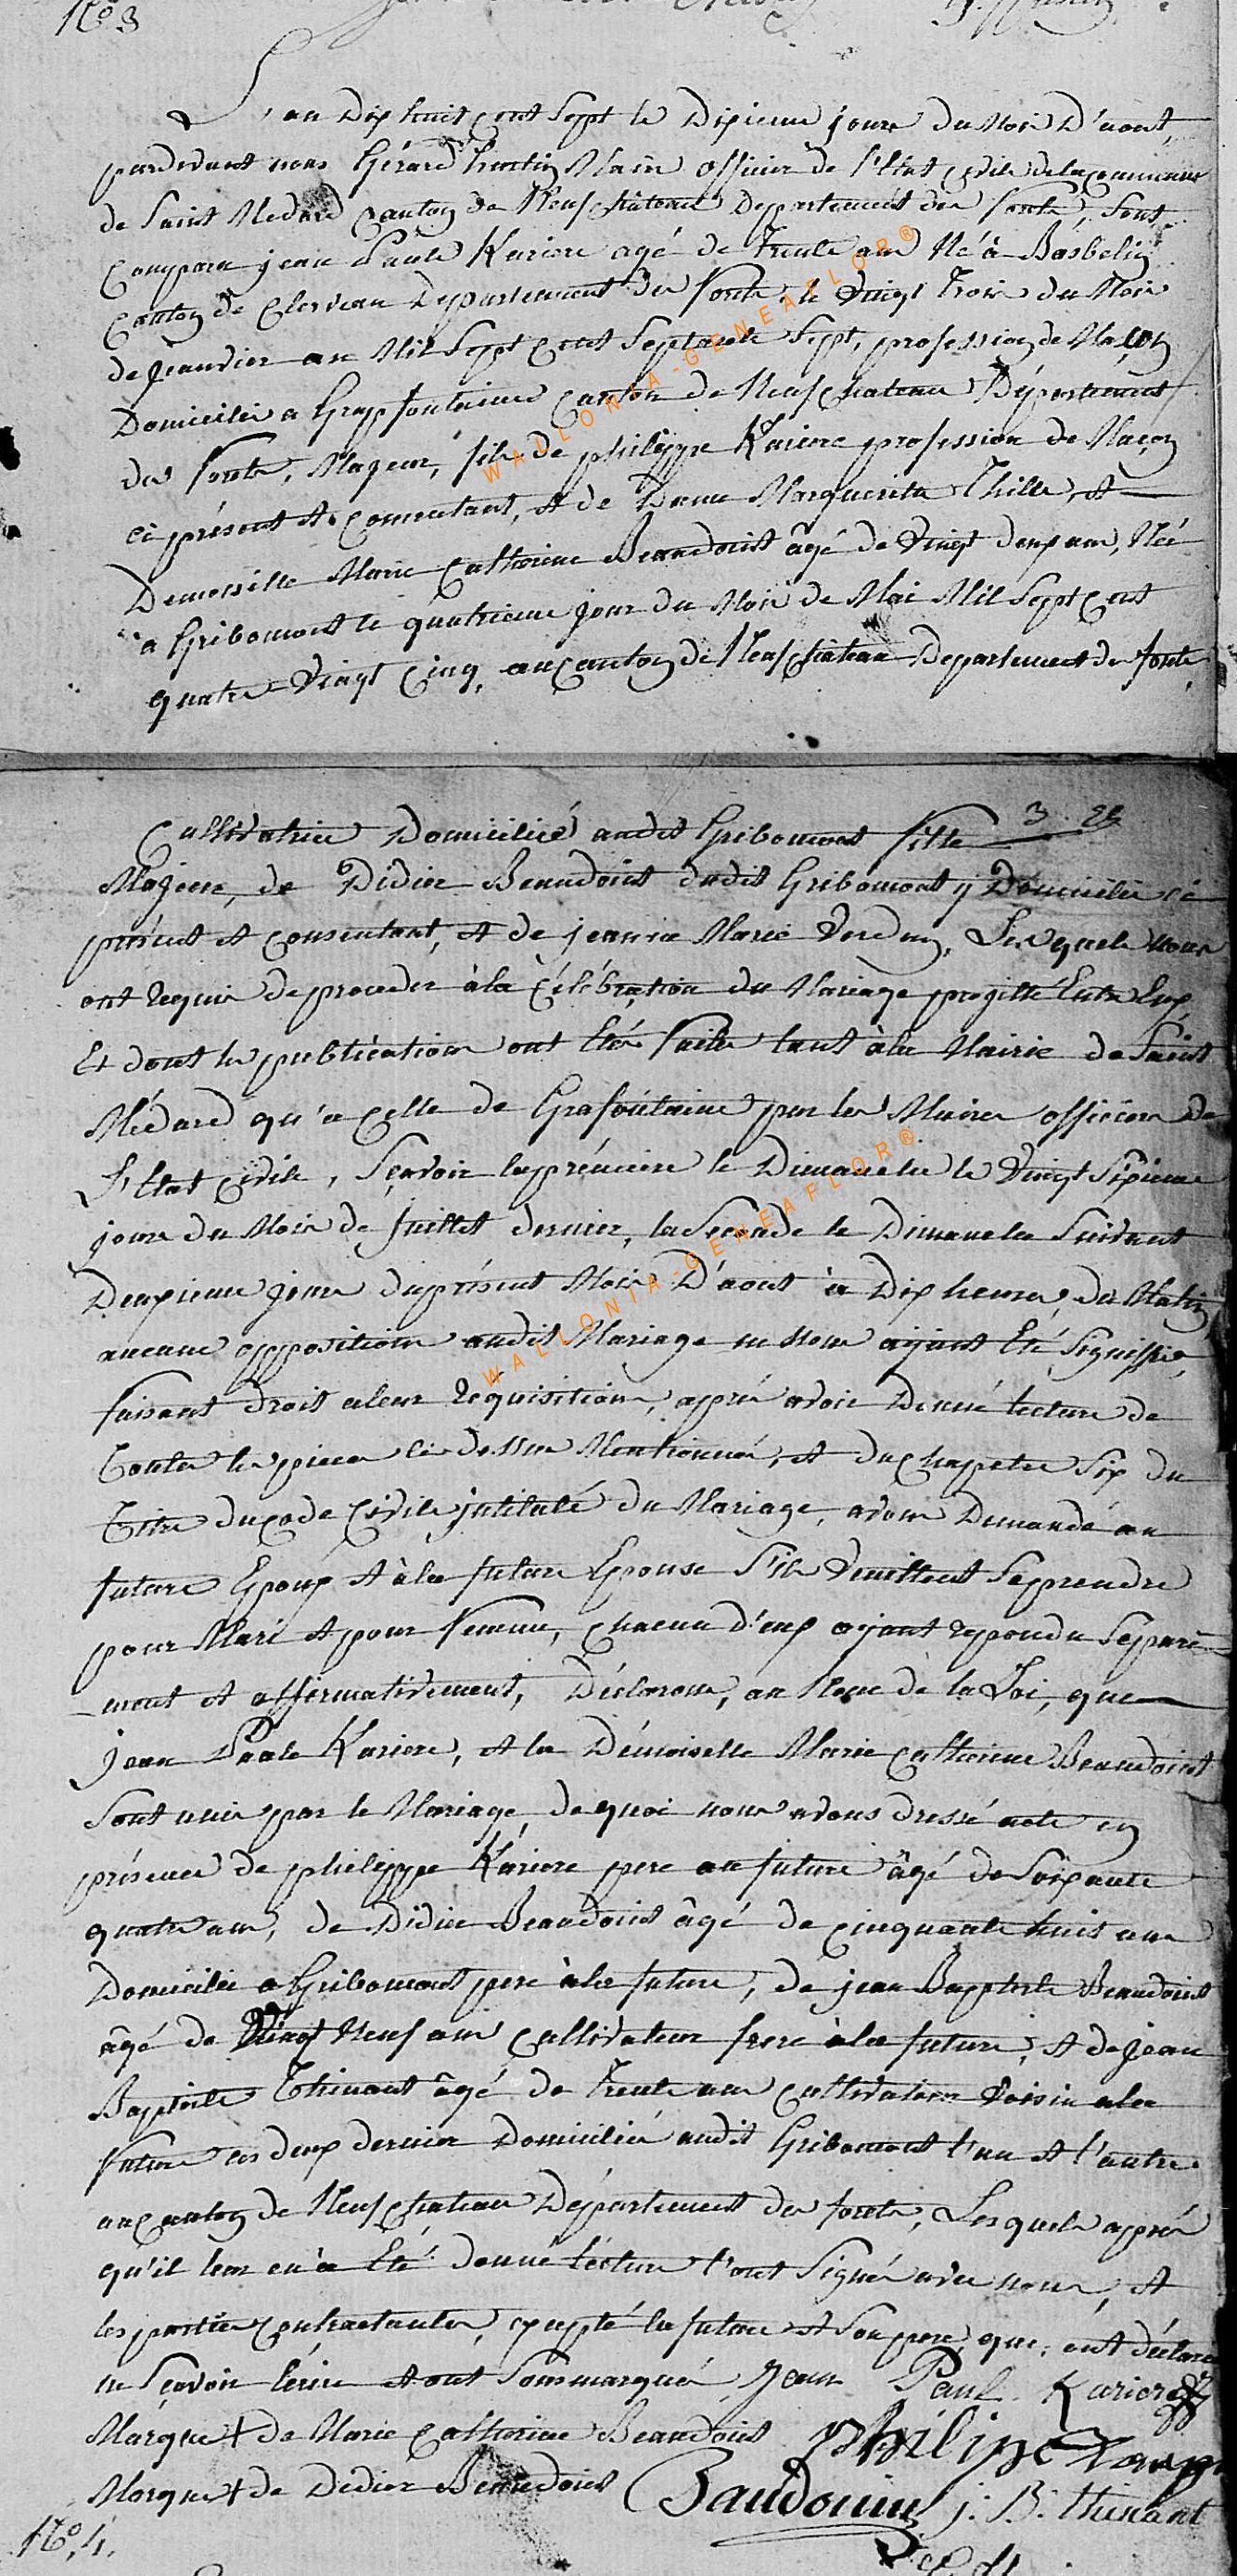 No 3
L'an Dix huit cent Sept le Dixieme jour du Mois D'aout,
pardevant nous Gérard Maire officier de l'Etat Civile de la commune
de Saint Medard Canton de Neufchâteau Departement des forets, Sont
Comparu jean Paule Kariere agé de Trente ans Né à Basbelin
Canton de Clervau Departement des forets le Vingt Trois du Mois
de jeanvier an Mil Sept Cent Septante Sept, profession de Maçon
Domicilié a Grapfontaine Canton de Neufchateau Département
des forets, Majeur, fils de philippe Kariere profession de Maçon
ci présent et consentant, et de Dame Marguerite Thille, et
Demoiselle Marie Catherine Beaudoint âgé de Vingt deux ans, Née
a Gribomont le quatrieme jour du Mois de Mai Mil Sept Cent
quatre Vingt Cinq, au Canton de Neufchateau Departement des forets
Cultivatrice Domicilié audit Gribomont fille 3
Majeure, de Didier Beaudoint dudit Gribomont y Domicilié ci
présent et consentant, et de jeanne Marie Verdun, Lesquels nous
ont requis de proceder à la Célébration du Mariage projetté Entre Eux
Et dont les publications ont Etés faites tant à la Mairie de Saint
Médard qu'a celle de Grafontaine par les Maires officiers de
L'Etat Civile, Sçavoir la prémiere le Dimanche le Vingt Sixieme
jour du Mois de Juillet dernier, la Seconde le Dimanche Suivant
Deuxieme jour du présent Mois D'aout à Dix heures du Matin
aucune opposition audit Mariage ne Nous aijant Eté Signiffié,
faisant droit a leur requisition, aprés avoir Donné lecture de
Toutes les pieces ci dessus Mentionnés, et du Chapitre Six du
Titre du Code Civile jntitulé du Mariage, avons Demandé au
future Epoux et à la future Epouse S'ils Veuillent Se prendre
pour Mari et pour femme, chacun d'eux ayant repondu Séparé
-ment et affirmativement, Déclarons, au Nom de la Loi, que
jean Paule Kariere, et la Démoiselle Marie Catherine Beaudoint
Sont unis par le Mariage de quoi nous avons dressé acte en
présence de philippe Kariere pere au future âgé de Soixante
quatre ans, de Didier Beaudoint âgé de cinquante huit ans
Domicilié a Gribomont pere à la future, de jean Baptiste Beaudoint
âgé de Vingt Neuf ans Cultivateur frere à la future, et de jean
Baptiste Thinant âgé de Trente ans Cultivateur Voisin a la
future ces deux dernier Domiciliés audit Gribomont l'un et l'autre
au Canton de Neufchateau Département des forets, Lesquels aprés
qu'il leur en a Eté donné lécture l'ont Signé avec nous, et
les parties contractantes, excepté la future et Son pere que ont déclaré
ne Sçavoir Ecrire et ont Sommarqué Jean Paul Kariere
Marque + de Marie Catherine Beaudoint Philipe
Marque + de Didier Beaudoint Baudouin j: B: thinant
No 4.
WALLONIA-GENEAFLOR®
WALLONIA-GENEAFLOR®